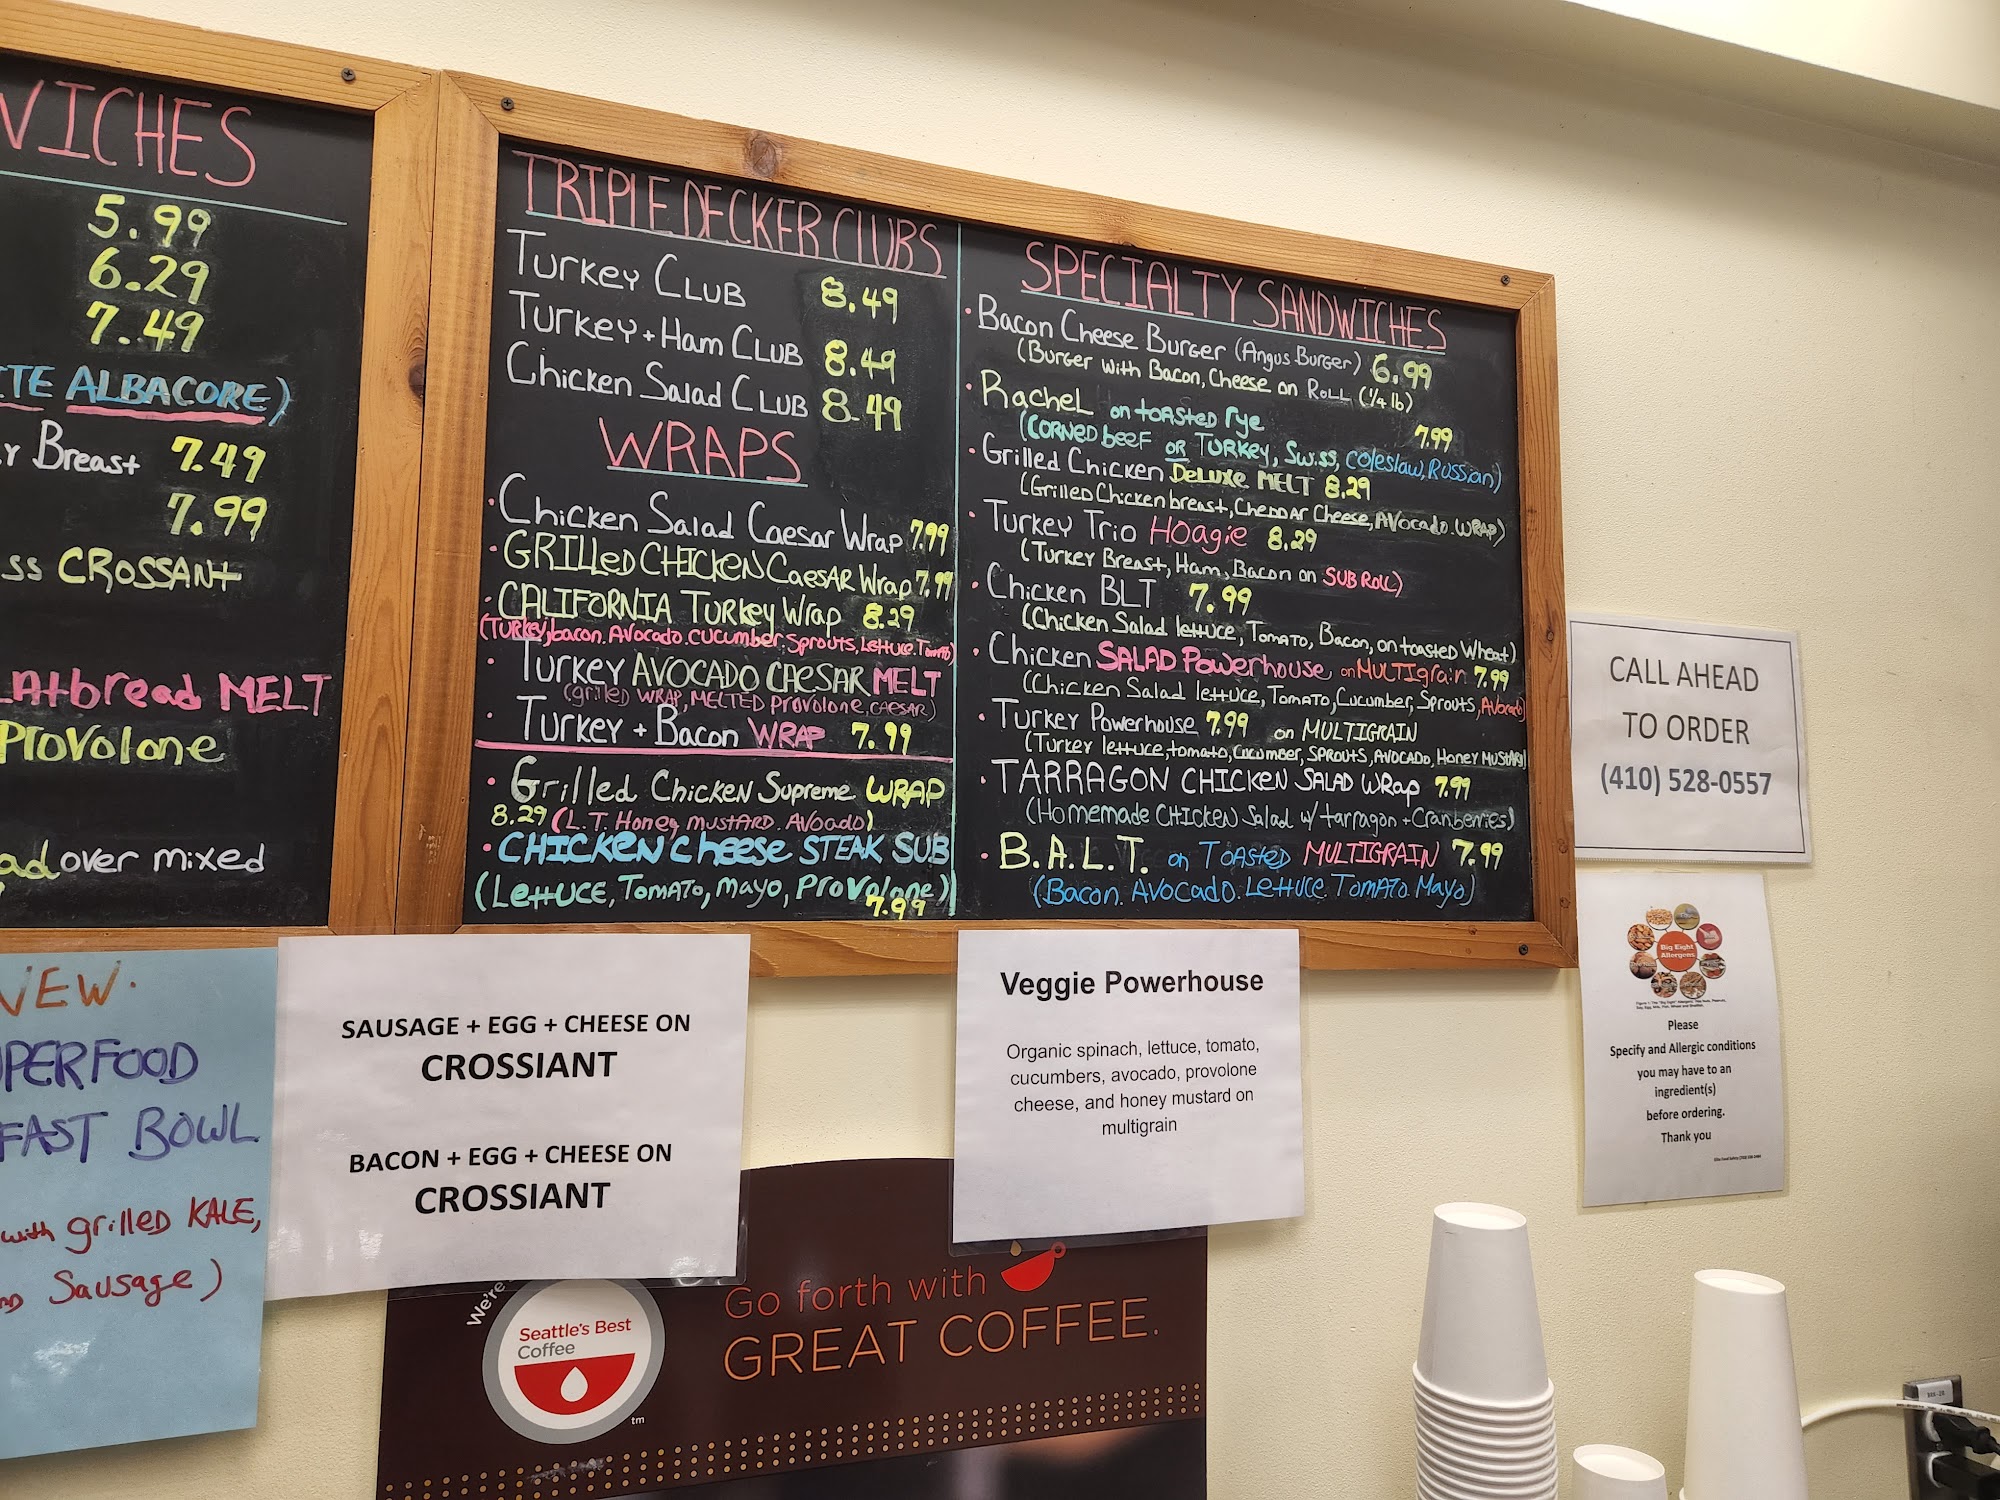 WICHES
5.99
6.29
7.49
ALBACORE)
Breast 7.49
7.99
CROSSANT
MELT
PROVOLONE
over mixed
TRIPLE DECKER CLUBS
Turkey CLUB 8.49
Turkey + Ham CLUB 8.49
Chicken Salad CLUB 8.49
WRAPS
• Chicken Salad Caesar Wrap 7.99
• GRILLED CHICKEN CAESAR Wrap 7.99
• CALIFORNIA Turkey Wrap 8.29
(TURKEY, bacon. AVOCADO. CUCUMBER. SPROUTS, LETTUCE. TOMATO)
• Turkey AVOCADO CAESAR MELT
(grilled WRAP, MELTED Provolone, CAESAR)
• Turkey + Bacon WRAP 7.99
• Grilled Chicken Supreme WRAP
8.29 (L.T. Honey MUSTARD. AVOCADO)
• CHICKEN Cheese STEAK SUB
(LETTUCE, TOMATO, MAYO, PROVOLONE)
7.99
SPECIALTY SANDWICHES
• Bacon Cheese Burger (Angus Burger) 6.99
(Burger with Bacon, Cheese on ROLL (1/4 lb)
• RACHEL on toasted rye 7.99
(CORNED beef or TURKEY, Swiss, coleslaw, Russian)
• Grilled Chicken DELUXE MELT 8.29
(Grilled Chicken breast, CHEDDAR Cheese, AVOCADO. WRAP)
• Turkey Trio Hoagie 8.29
(Turkey Breast, Ham, Bacon on SUB ROLL)
• Chicken BLT 7.99
(Chicken Salad lettuce, Tomato, Bacon, on toasted Wheat)
• Chicken SALAD Powerhouse on MULTIgrain 7.99
(Chicken Salad lettuce, Tomato, Cucumber, Sprouts, Avocado)
• Turkey Powerhouse 7.99 on MULTIGRAIN
(Turkey lettuce, tomato, cucumber, SPROUTS, AVOCADO, Honey MUSTARD)
• TARRAGON CHICKEN SALAD Wrap 7.99
(Homemade CHICKEN Salad w/ tarragon + Cranberries)
• B.A.L.T. on TOASTED MULTIGRAIN 7.99
(Bacon. AVOCADO. LETTUCE. TOMATO. MAYO)
CALL AHEAD
TO ORDER
(410) 528-0557
Big Eight
Allergens
Please
Specify and Allergic conditions
you may have to an
ingredient(s)
before ordering.
Thank you
NEW.
SUPERFOOD
BOWL
with grilled KALE,
Sausage)
SAUSAGE + EGG + CHEESE ON
CROSSIANT
BACON + EGG + CHEESE ON
CROSSIANT
Veggie Powerhouse
Organic spinach, lettuce, tomato,
cucumbers, avocado, provolone
cheese, and honey mustard on
multigrain
We're
Seattle's Best
Coffee
tm
Go forth with
GREAT COFFEE.